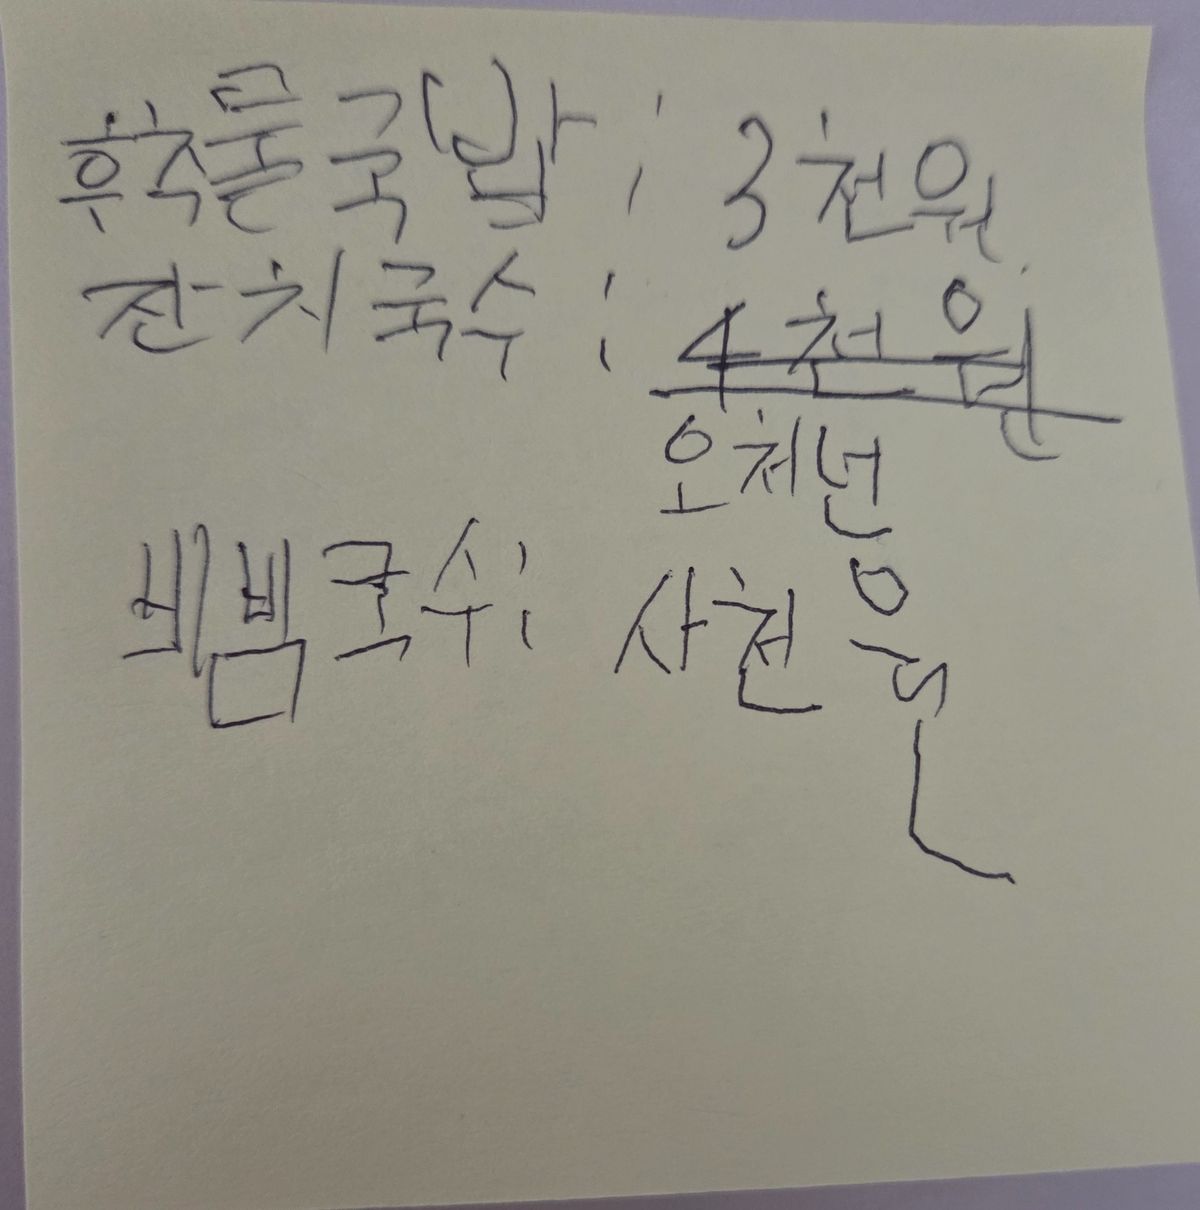 후추물국밥 : 3천원
잔치국수 : 4천원
오처넌
비빔국수 : 사천원